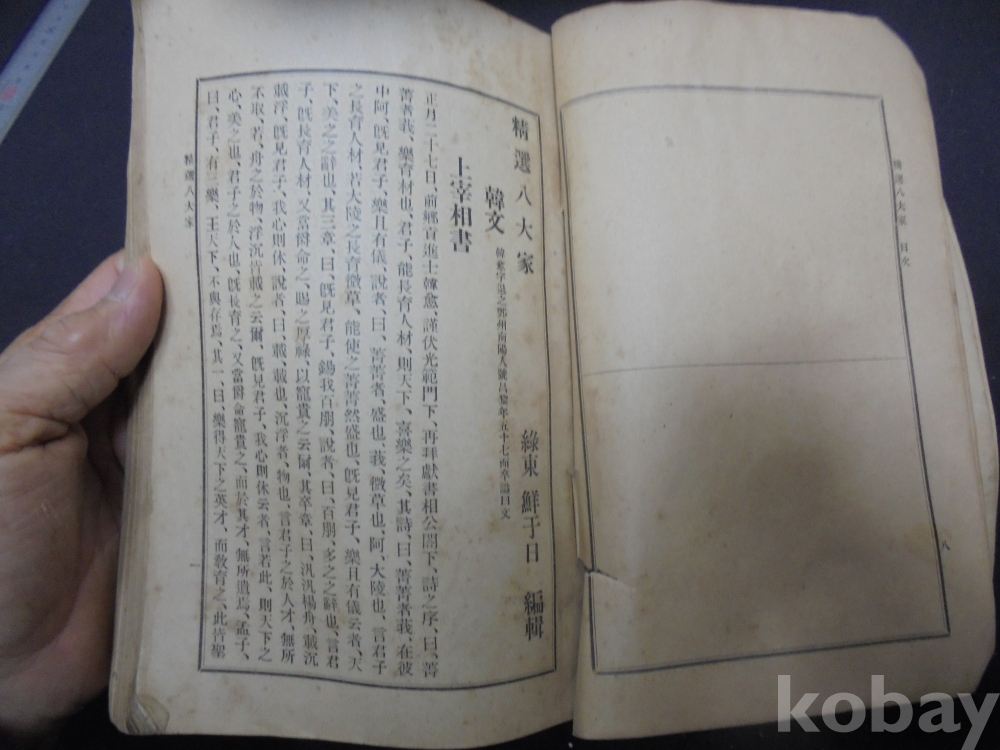 精選八大家 目次
八
精選八大家
綠東 鮮于日 編輯
韓文 韓愈字退之鄧州南陽人號昌黎年五十七而卒謚曰文
上宰相書
正月二十七日、前鄉貢進士韓愈、謹伏光範門下、再拜獻書相公閤下、詩之序、曰、菁
菁者莪、樂育材也、君子、能長育人材、則天下、喜樂之矣、其詩、曰、菁菁者莪、在彼
中阿、旣見君子、樂且有儀、說者、曰、菁菁者、盛也、莪、微草也、阿、大陵也、言君子
之長育人材、若大陵之長育微草、能使之菁菁然盛也、旣見君子、樂且有儀云者、天
下、美之之辭也、其三章、曰、旣見君子、錫我百朋、說者、曰、百朋、多之之辭也、言君
子、旣長育人材、又當爵命之、賜之厚祿、以寵貴之云爾、其卒章、曰、汎汎楊舟、載沉
載浮、旣見君子、我心則休、說者、曰、載、載也、沉浮者、物也、言君子之於人才、無所
不取、若、舟之於物、浮沉皆載之云爾、旣見君子、我心則休云者、言若此、則天下之
心、美之也、君子之於人也、旣長育之、又當爵命寵貴之、而於其才、無所遺焉、孟子、
曰、君子、有三樂、王天下、不與存焉、其一、曰、樂得天下之英才、而敎育之、此皆聖
精選八大家
一
kobay